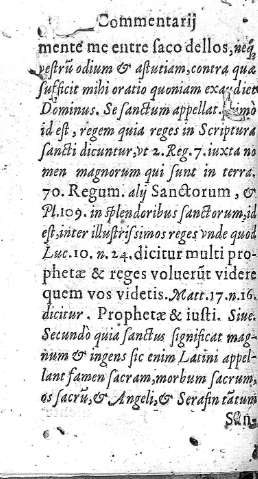 Commentarij
mente me entre saco dellos, neq;
vestrũ odium & astutiam, contra quæ
sufficit mihi oratio quoniam exaudiet
Dominus. Se sanctum appellat.
id est, regem quia reges in Scriptura
sancti dicuntur, vt 2. Reg. 7. iuxta no
men magnorum qui sunt in terra.
70. Regum. alij Sanctorum, &
Pl. 109. in splendoribus sanctorum, id
est, inter illustrissimos reges vnde quod
Luc. 10. n. 24. dicitur multi pro-
phetæ & reges voluerũt videre
quem vos videtis. Matt. 17. n. 16.
dicitur. Prophetæ & iusti. Siue.
Secundò quia sanctus significat mag-
num & ingens sic enim Latini appel-
lant famen sacram, morbum sacrum,
os sacrũ, & Angeli, & Serafin tãtum
San-